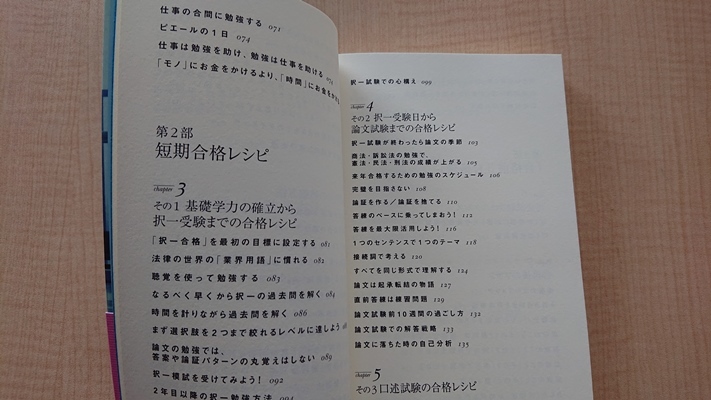 仕事の合間に勉強する 071
ピエールの1日 074
仕事は勉強を助け、勉強は仕事を助ける
「モノ」にお金をかけるより、「時間」にお金を
第2部
短期合格レシピ
chapter 3
その1 基礎学力の確立から
択一受験までの合格レシピ
「択一合格」を最初の目標に設定する 081
法律の世界の「業界用語」に慣れる 082
聴覚を使って勉強する 083
なるべく早くから択一の過去問を解く 084
時間を計りながら過去問を解く 086
まず選択肢を2つまで絞れるレベルに達しよう
論文の勉強では、
答案や論証パターンの丸覚えはしない 089
択一模試を受けてみよう! 092
2年目以降の択一勉強方法 094
択一試験での心構え 099
chapter 4
その2 択一受験日から
論文試験までの合格レシピ
択一試験が終わったら論文の季節 103
商法・訴訟法の勉強で、
憲法・民法・刑法の成績が上がる 105
来年合格するための勉強のスケジュール 106
完璧を目指さない 108
論証を作る/論証を捨てる 110
答練のペースに乗ってしまおう! 112
答練を最大限活用しよう! 116
1つのセンテンスで1つのテーマ 118
接続詞で考える 120
すべてを同じ形式で理解する 124
論文は起承転結の物語 127
直前答練は練習問題 129
論文試験前10週間の過ごし方 132
論文試験での解答戦略 133
論文に落ちた時の自己分析 135
chapter 5
その3 口述試験の合格レシピ